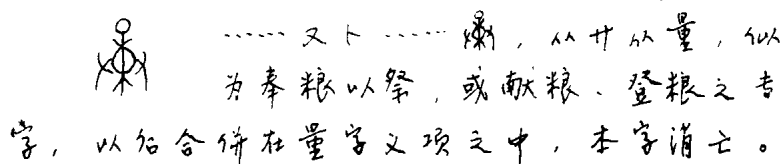 …… 又卜 …… ，从廾从量，似
为奉粮以祭，或献粮、登粮之专
字，以后合併在量字义项之中，本字消亡。